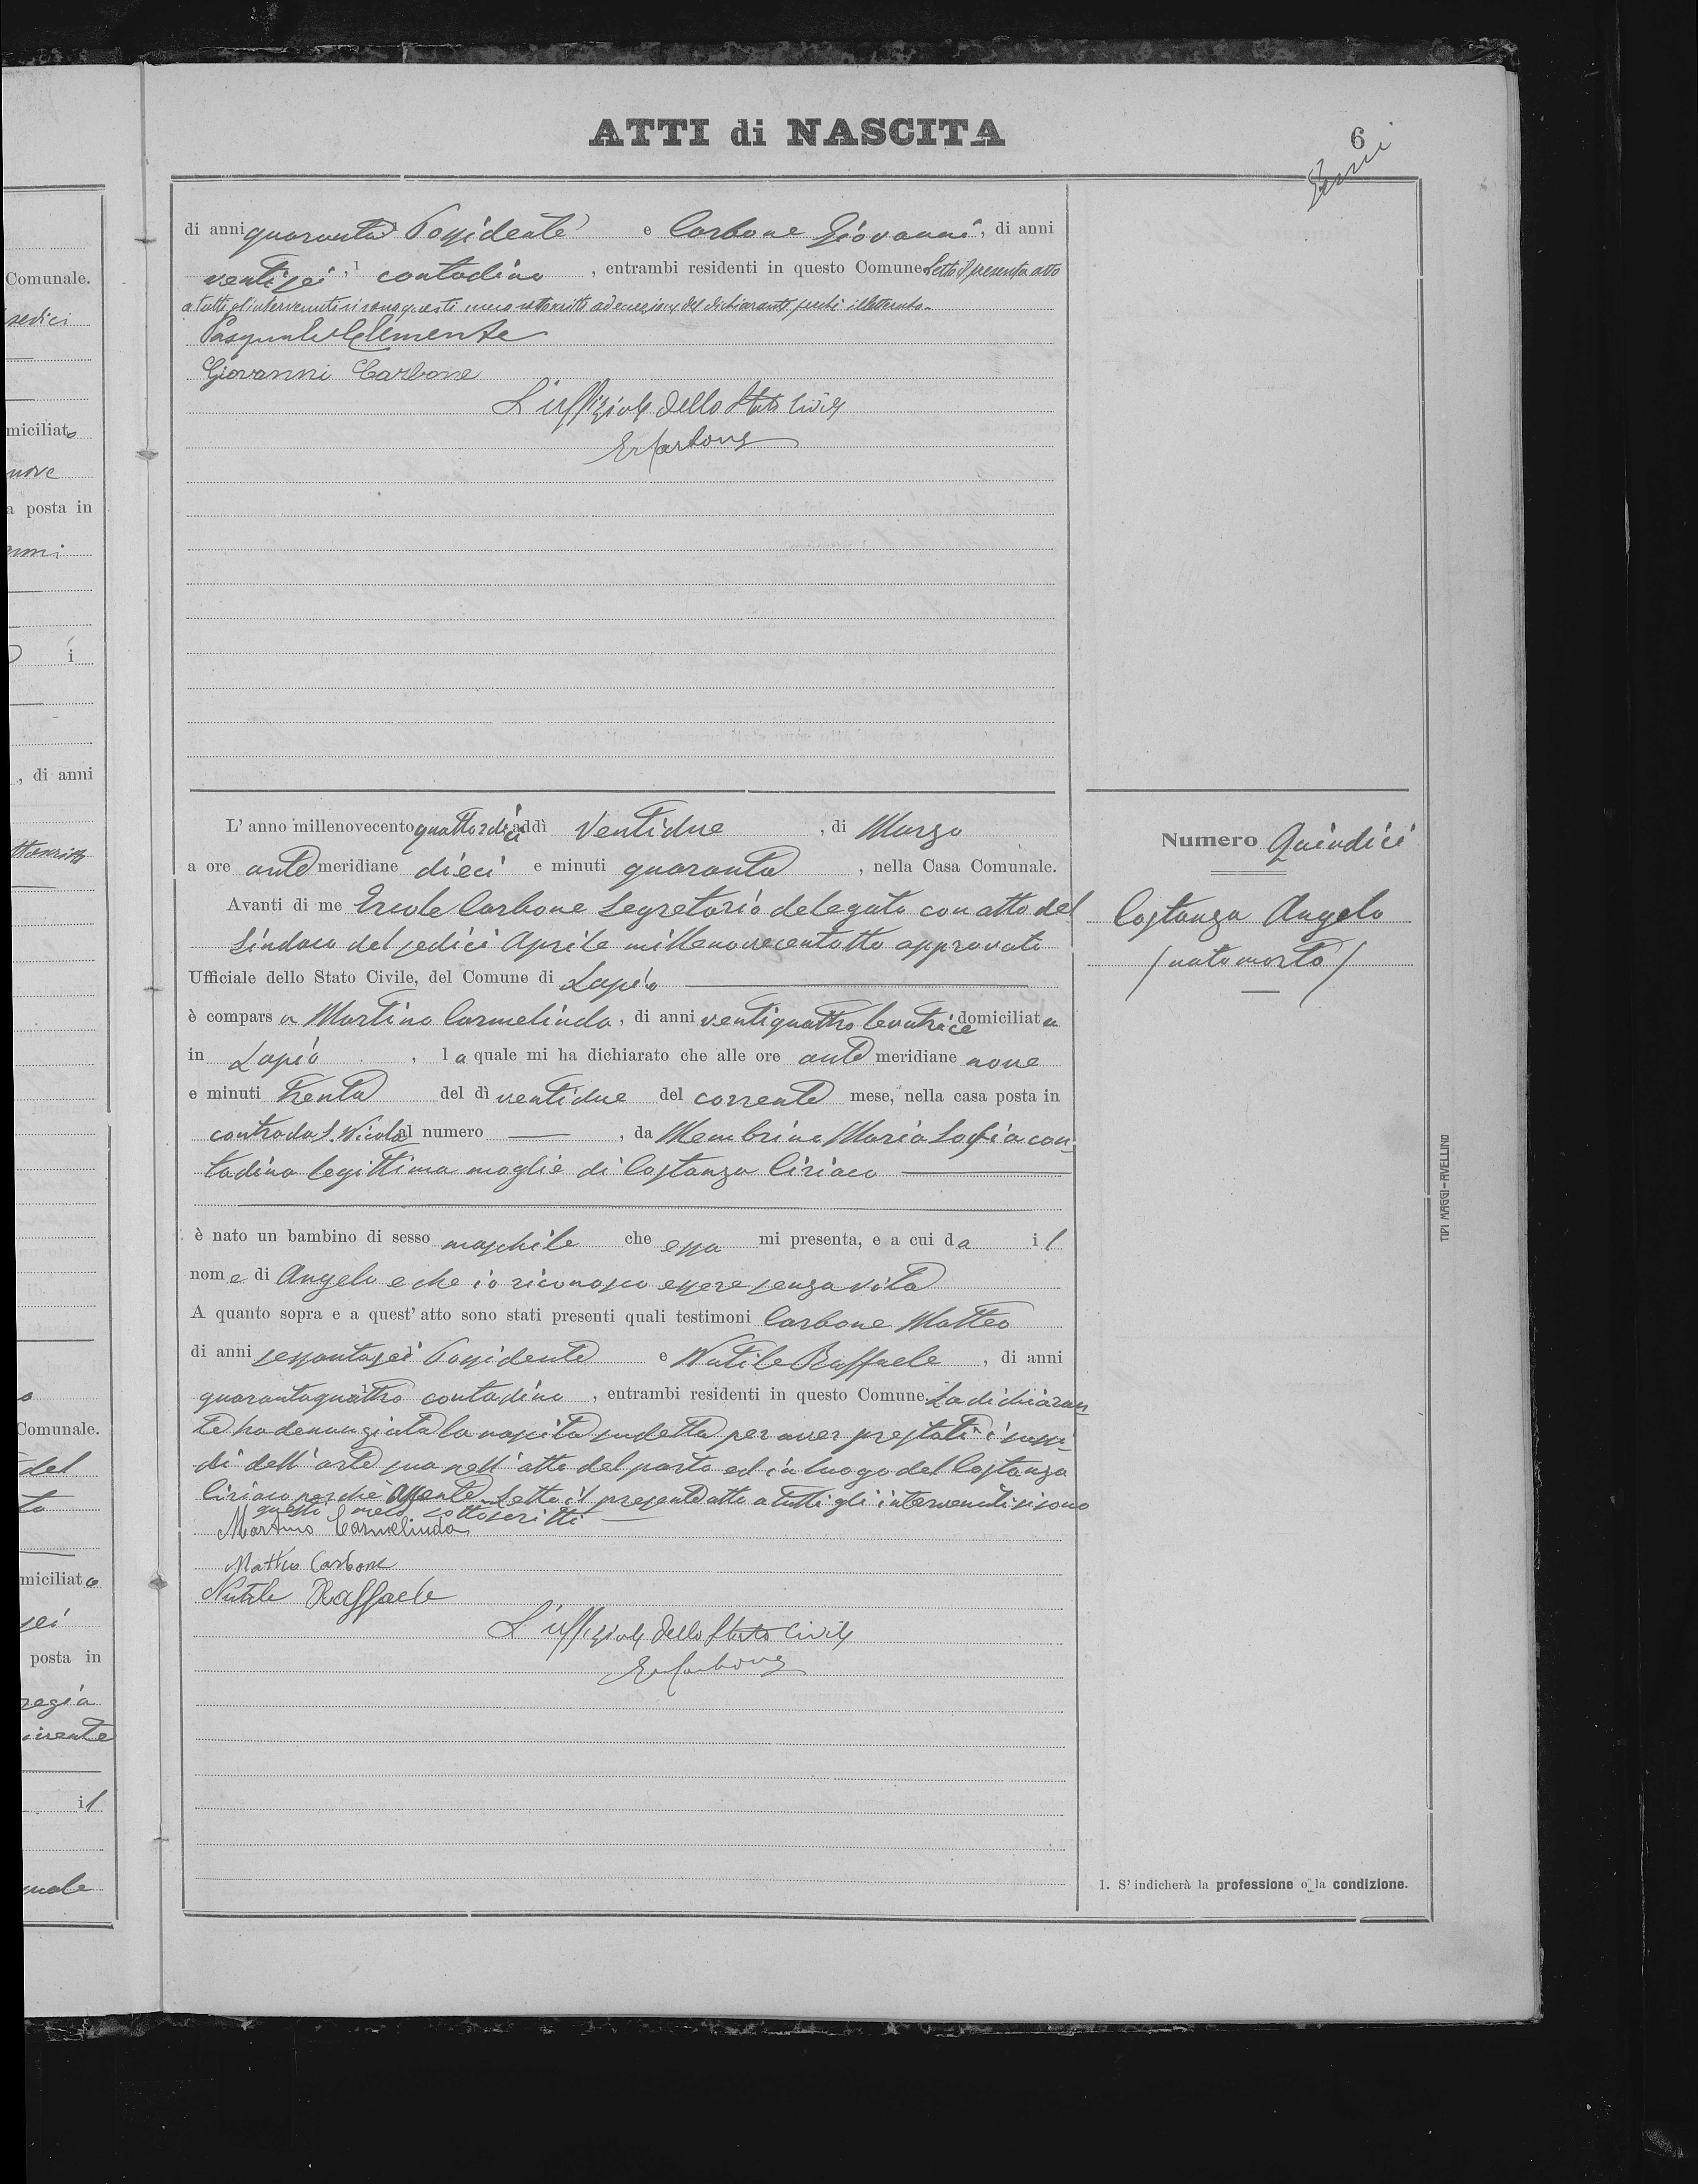 ATTI di NASCITA
6
di anni quaranta Possidente e Carbone Giovanni, di anni
ventisei, 1 contadino, entrambi residenti in questo Comune Letto il presente atto
a tutti gl'intervenuti si sono questi meco sottoscritti ad eccezione del dichiarante perchè illetterato.
Pasquale Clemente
Giovanni Carbone
L'uffiziale dello Stato Civile
Er Carbone
L'anno millenovecentoquattordici addì Ventidue, di Marzo
a ore antemeridiane dieci e minuti quaranta, nella Casa Comunale.
Avanti di me Ercole Carbone Segretario delegato con atto del
Sindaco del sedici Aprile millenovecentotto approvato
Ufficiale dello Stato Civile, del Comune di Lapio
è comparsa Martino Carmelinda, di anni ventiquattro levatrice domiciliata
in Lapio, la quale mi ha dichiarato che alle ore antemeridiane nove
e minuti trenta del dì ventidue del corrente mese, nella casa posta in
contrada S. Nicola al numero — , da Membrino Maria Sofia con-
tadina legittima moglie di Costanza Ciriaco
è nato un bambino di sesso maschile che essa mi presenta, e a cui da il
nome di Angelo e che io riconosco essere senza vita
A quanto sopra e a quest'atto sono stati presenti quali testimoni Carbone Matteo
di anni sessantasei 1 Possidente e Nutile Raffaele, di anni
quarantaquattro 1 contadino, entrambi residenti in questo Comune. La dichiaran-
te ha denunziata la nascita sudetta per aver prestati i sussi-
di dell'arte sua nell'atto del parto ed in luogo del Costanza
Ciriaco perchè assente. Letto il presente atto a tutti gli intervenuti si sono
questi meco sottoscritti
Martino Carmelinda
Matteo Carbone
Nutile Raffaele
L'uffiziale dello Stato Civile
Er Carbone
Numero Quindici
Costanza Angelo
(nato morto)
1. S'indicherà la professione o la condizione.
TIPI MAGGI-AVELLINO
Comunale.
sedici
miciliato
nove
a posta in
i
, di anni
Comunale.
del
to
miciliata
sei
posta in
il